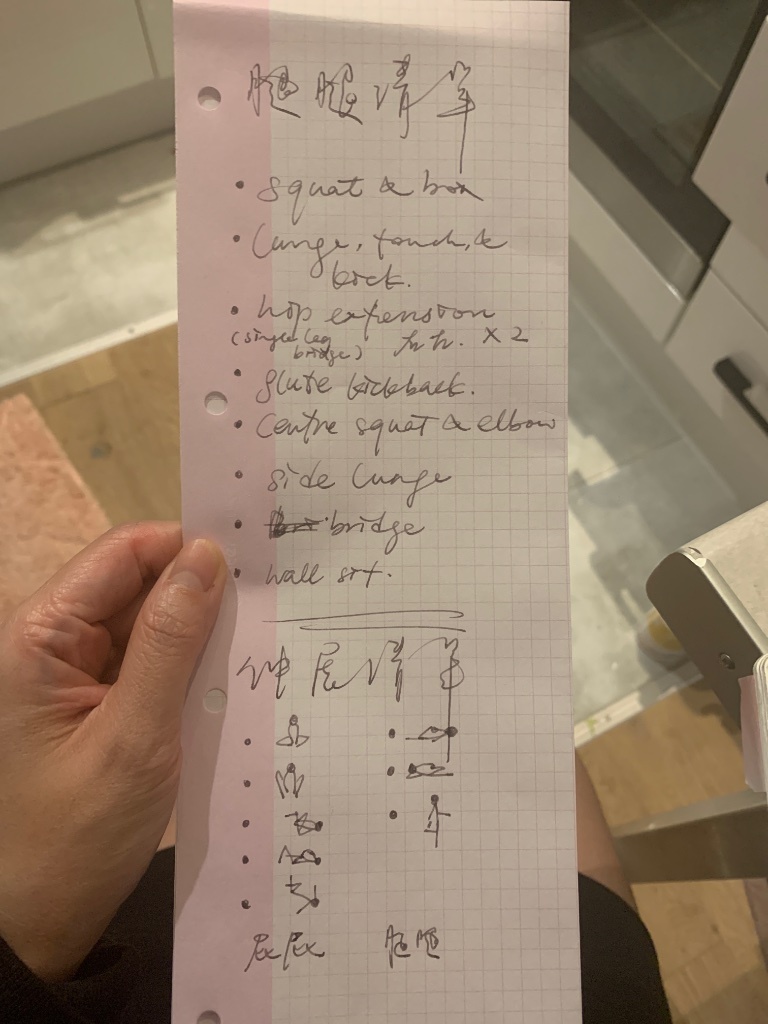 腿腿清单
squat & box
lunge, touch, &
kick.
hip extension
(single leg
bridge) X 2
glute kickback.
centre squat & elbow
side lunge
bridge
wall sit.
伸展清单
屁屁 腿腿